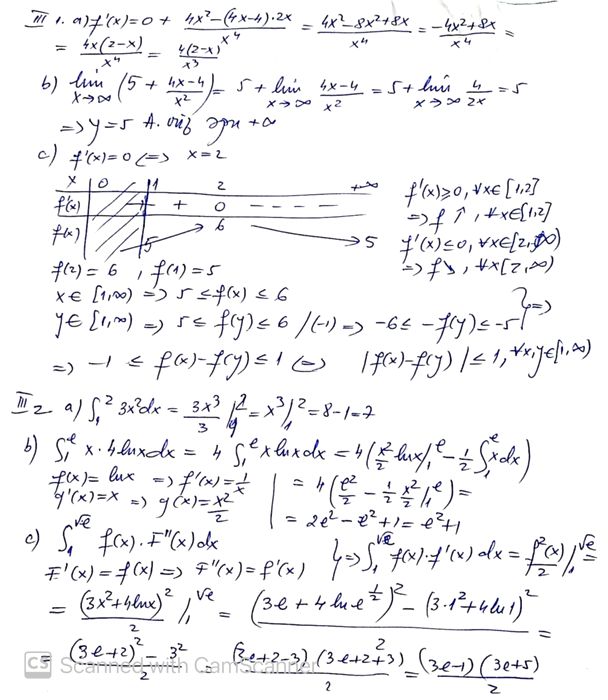 III 1. a) f'(x)=0 + (4x²-(4x-4)·2x)/x⁴ = (4x²-8x²+8x)/x⁴ = (-4x²+8x)/x⁴ =
= 4x(2-x)/x⁴ = 4(2-x)/x³
b) lim x→∞ (5 + (4x-4)/x²) = 5 + lim x→∞ (4x-4)/x² = 5 + lim x→∞ 4/2x = 5
=> y=5 A. oriz spre +∞
c) f'(x)=0 <=> x=2
x 0 1 2 +∞
f'(x) + 0 - - - -
f(x) 5 6 5
f'(x)≥0, ∀x∈[1,2]
=> f ↑, ∀x∈[1,2]
f'(x)≤0, ∀x∈[2,∞)
=> f↘, ∀x[2,∞)
f(2)=6, f(1)=5
x∈[1,∞) => 5≤f(x)≤6
y∈[1,∞) => 5≤f(y)≤6 /(-1) => -6≤-f(y)≤-5 } =>
=> -1 ≤ f(x)-f(y) ≤ 1 <=> |f(x)-f(y)| ≤ 1, ∀x,y∈[1,∞)
III 2 a) ∫₁² 3x²dx = 3x³/3 /₁² = x³/₁² = 8-1=7
b) ∫₁ᵉ x·4lnxdx = 4 ∫₁ᵉ xlnxdx = 4(x²/2 lnx/₁ᵉ - 1/2 ∫₁ᵉ xdx)
f(x)=lnx => f'(x)=1/x
g'(x)=x => g(x)=x²/2
= 4(e²/2 - 1/2 x²/2 /₁ᵉ) =
= 2e²-e²+1=e²+1
c) ∫₁^√e f(x)·F''(x)dx
F'(x)=f(x) => F''(x)=f'(x)
} => ∫₁^√e f(x)·f'(x)dx = f²(x)/2 /₁^√e =
= (3x²+4lnx)²/2 /₁^√e = ((3e+4lne^½)² - (3·1²+4ln1)²)/2 =
= ((3e+2)²-3²)/2 = (3e+2-3)(3e+2+3)/2 = (3e-1)(3e+5)/2
CS Scanned with CamScanner